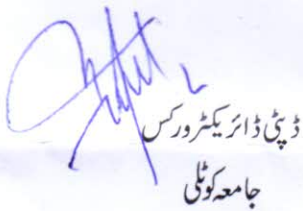 ڈپٹی ڈائریکٹر ورکس
جامعہ کوٹلی